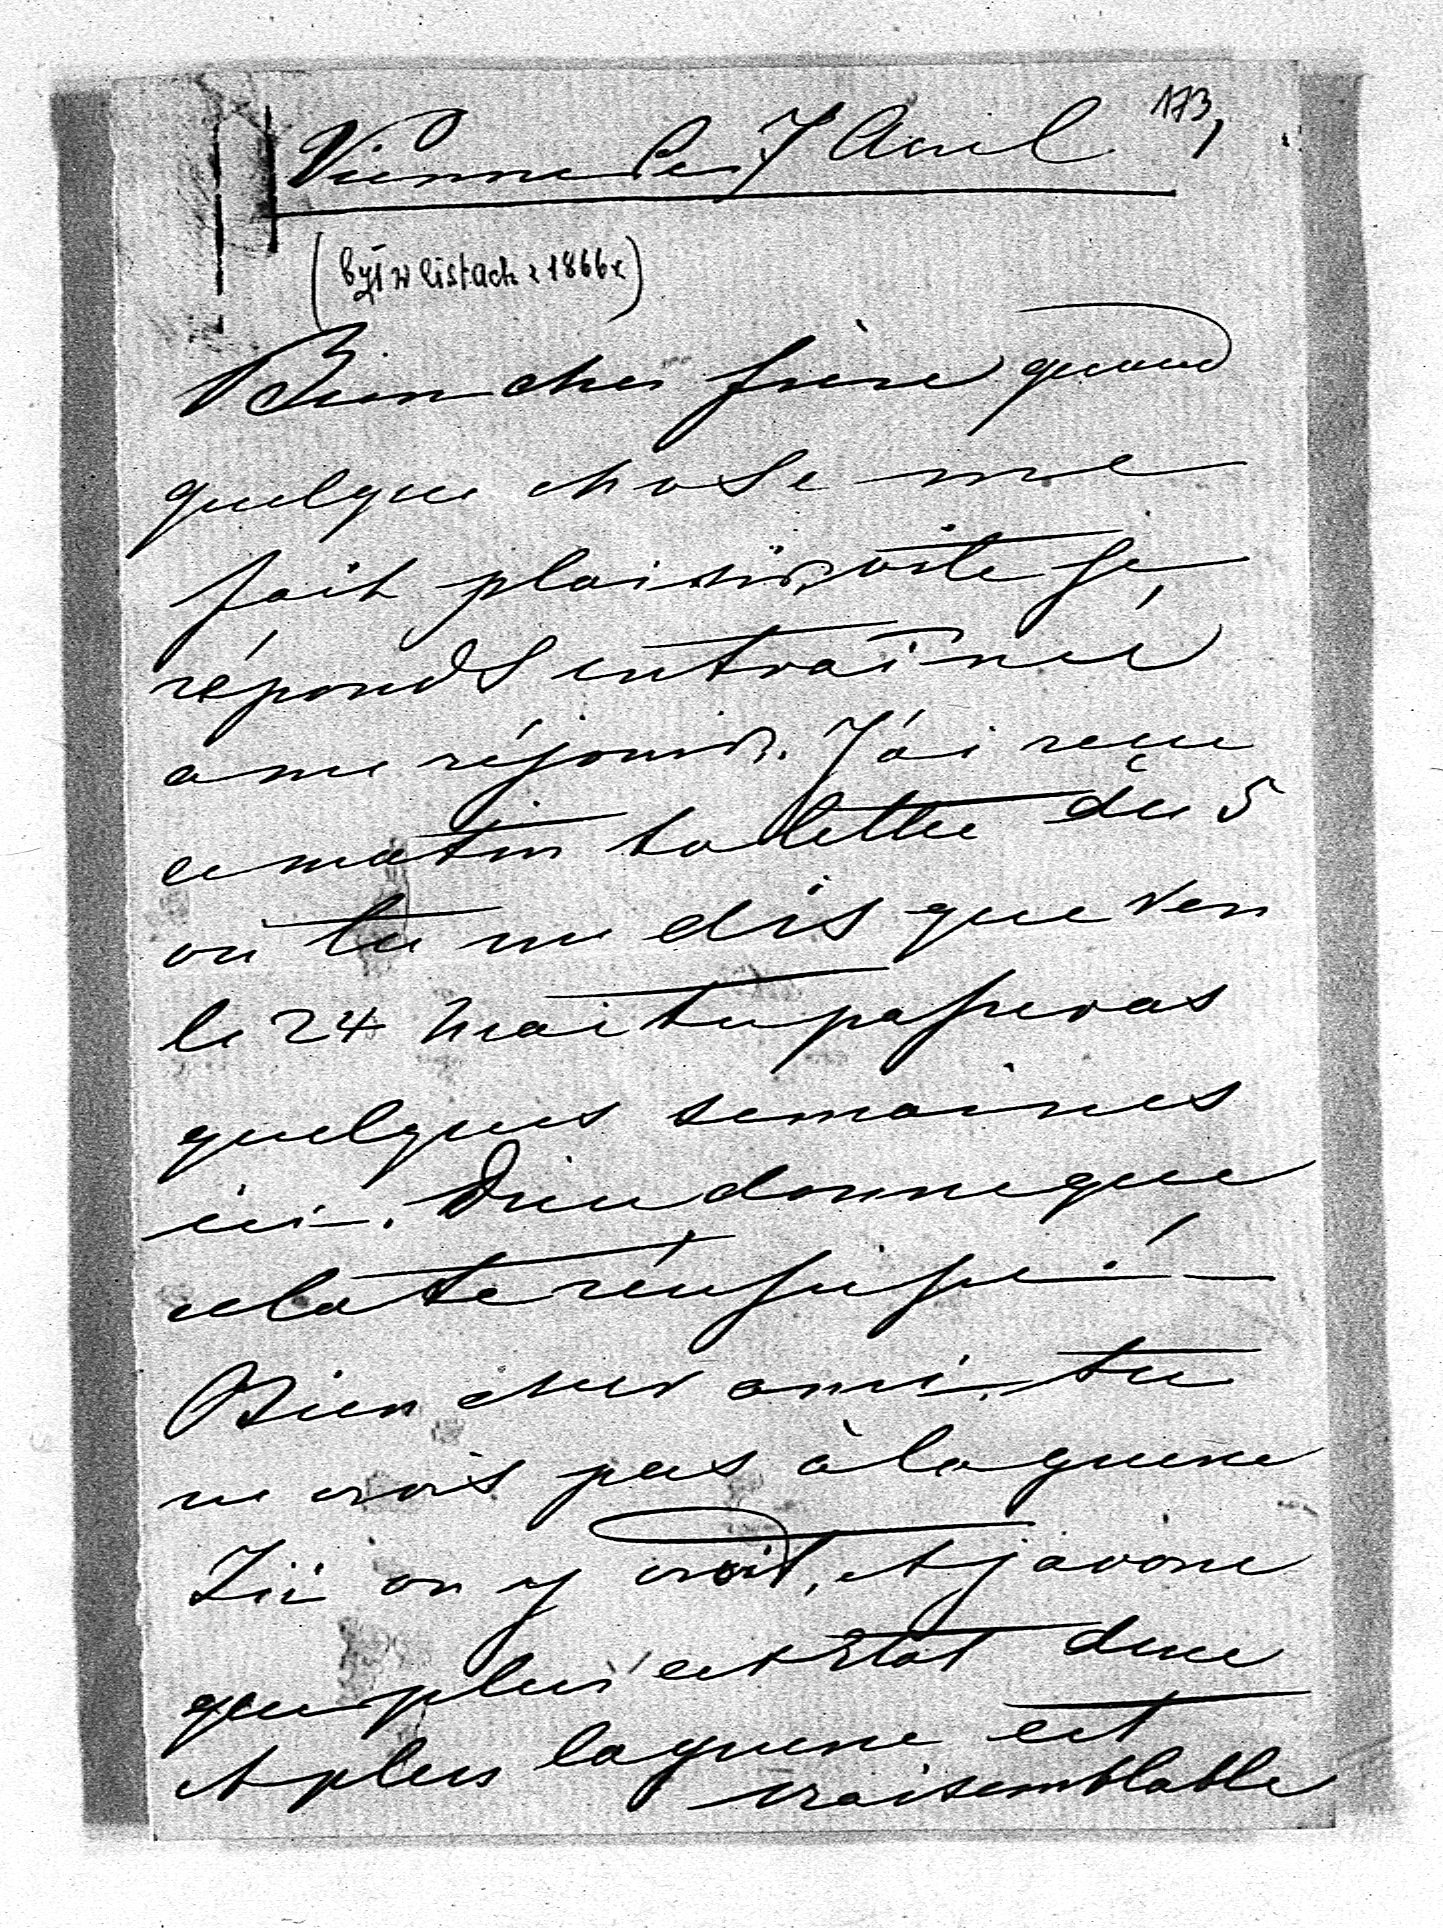 173,
Vienne le 7 Avril
(był w listach z 1866 r)
Bien cher frère quand
quelque chose me
fait plaisir, vite je
réponds entraîné
a me réjouir. J'ai reçu
ce matin ta lettre du 5
où tu me dis que vers
le 24 Mai tu passeras
quelques semaines
ici. Dieu donne que
cela te réussisse —
Bien cher ami, tu
ne crois pas à la guerre
Ici on y croit, et j'avoue
que plus cet Etat dure
et plus la guerre est
vraisemblable